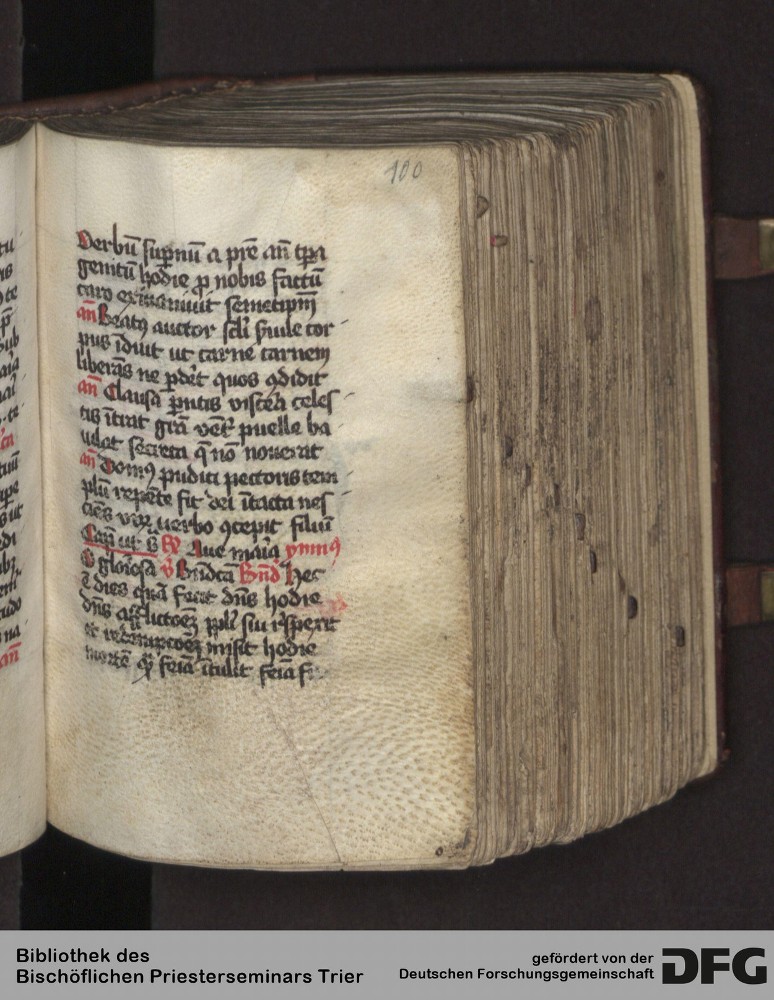 100
Verbū suꝑnū a pr̄e an̄ tꝑa
genitū hodie ꝓ nobis factū
caro exinaniuit semetipm̄
an̄ Beatꝰ auctor scl̄i ẜuile cor
pus īduit ut carne carnem
liberās ne ꝑdēt quos ꝯdidit
an̄ Clausa pn̄tis viscera celes
tis ītrat gr̄a vent̄ puelle ba
iulat secreta q̄ nō nouerat
an̄ Domꝰ pudici pectoris tem
plū repēte fit dei ītacta nes
ciēs verbo ꝯcepit filiū
R̄ Aue maria ymnꝰ
O glor̄iosa v̄ Bn̄dcā Bn̄d Hec
ē dies quā fecit dn̄s hodie
dn̄s afflictōeꝫ ppl̄i sui r̄spexit
et redēmptōeꝫ misit hodie
mortē qͣ̄ feīa ītulit feīa
Bibliothek des
Bischöflichen Priesterseminars Trier
gefördert von der
Deutschen Forschungsgemeinschaft
DFG